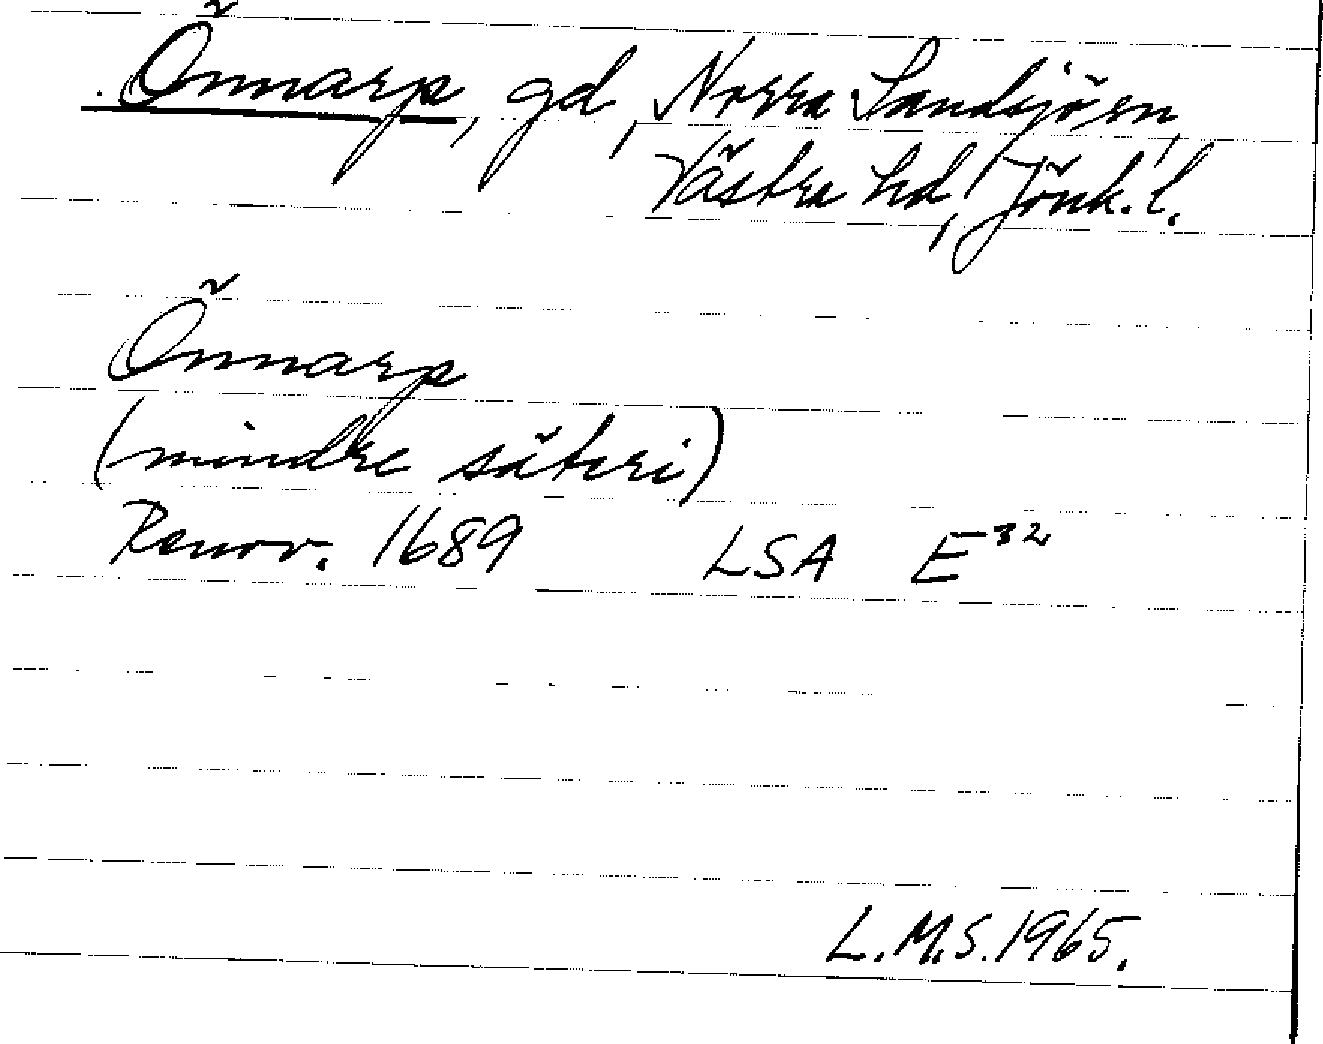 Önnarp, gd, Norra Sandsjö sn,
Västra hd, Jönk. l.
Önnarp
(mindre säteri)
Renov. 1689 LSA E³²
L.M.S. 1965.